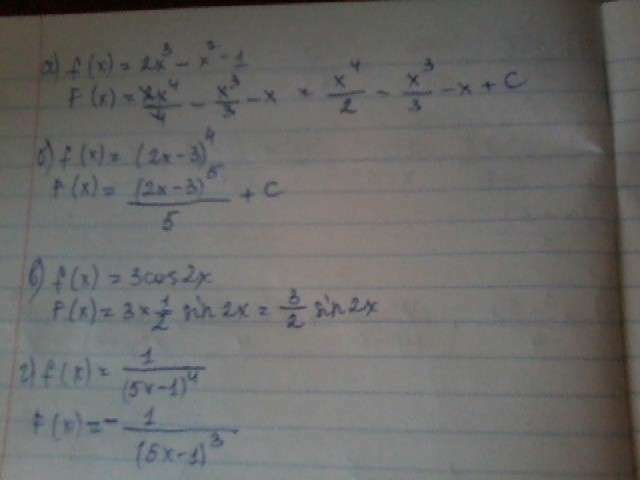 а) f(x) = 2x³ - x² - 1
F(x) = 2x⁴/4 - x³/3 - x = x⁴/2 - x³/3 - x + C
б) f(x) = (2x-3)⁴
F(x) = (2x-3)⁵/5 + C
в) f(x) = 3cos2x
F(x) = 3 × 1/2 sin 2x = 3/2 sin 2x
г) f(x) = 1/(5x-1)⁴
F(x) = - 1/(5x-1)³